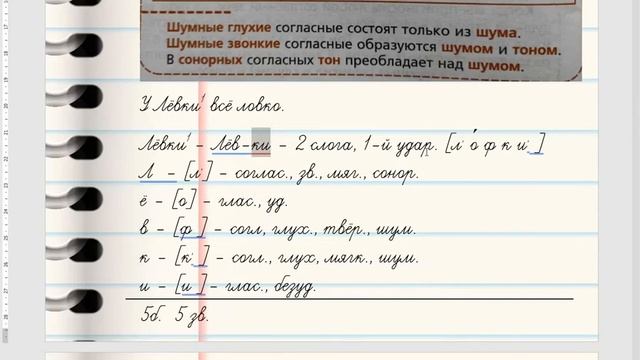 Шумные глухие согласные состоят только из шума.
Шумные звонкие согласные образуются шумом и тоном.
В сонорных согласных тон преобладает над шумом.
У Лёвки¹ всё ловко.
Лёвки¹ – Лёв-ки – 2 слога, 1-й удар. [л' о́ ф к и ]
Л – [л'] – соглас., зв., мяг., сонор.
ё – [о] – глас., уд.
в – [ф ] – согл, глух., твёр., шум.
к – [к' ] – согл., глух, мягк., шум.
и – [и ] – глас., безуд.
5б. 5 зв.